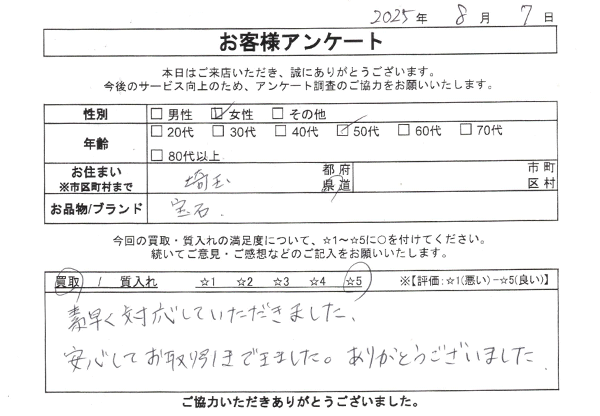 2025年 8月 7日
お客様アンケート
本日はご来店いただき、誠にありがとうございます。
今後のサービス向上のため、アンケート調査のご協力をお願いいたします。
性別 □男性 ☑女性 □その他
年齢 □20代 □30代 □40代 ☑50代 □60代 □70代
□80代以上
お住まい ※市区町村まで 埼玉 都府県道 市町区村
お品物/ブランド 宝石.
今回の買取・質入れの満足度について、☆1～☆5に○を付けてください。
続いてご意見・ご感想などのご記入をお願いいたします。
買取 / 質入れ ☆1 ☆2 ☆3 ☆4 ☆5 ※【評価:☆1(悪い)−☆5(良い)】
素早く対応していただきました、
安心してお取引きできました。ありがとうございました
ご協力いただきありがとうございました。